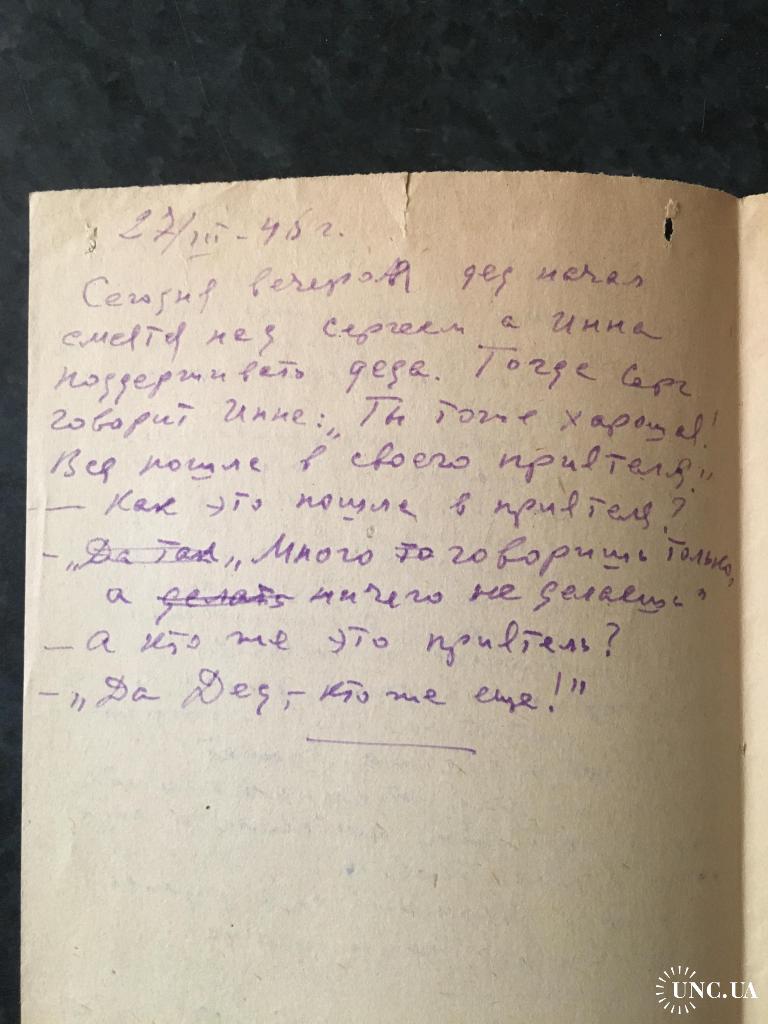 27/III - 45 г.
Сегодня вечером дед начал
смеятся над Сергеем а Инна
поддерживать деда. Тогда Серг
говорит Инне: „Ты тоже хорошая!
Вся пошла в своего приятеля."
— Как это пошла в приятеля?
- „Да так „Много то говоришь только,
а делать ничего не делаешь"
— А кто же это приятель?
- „Да Дед, - кто же еще!"
UNC.UA